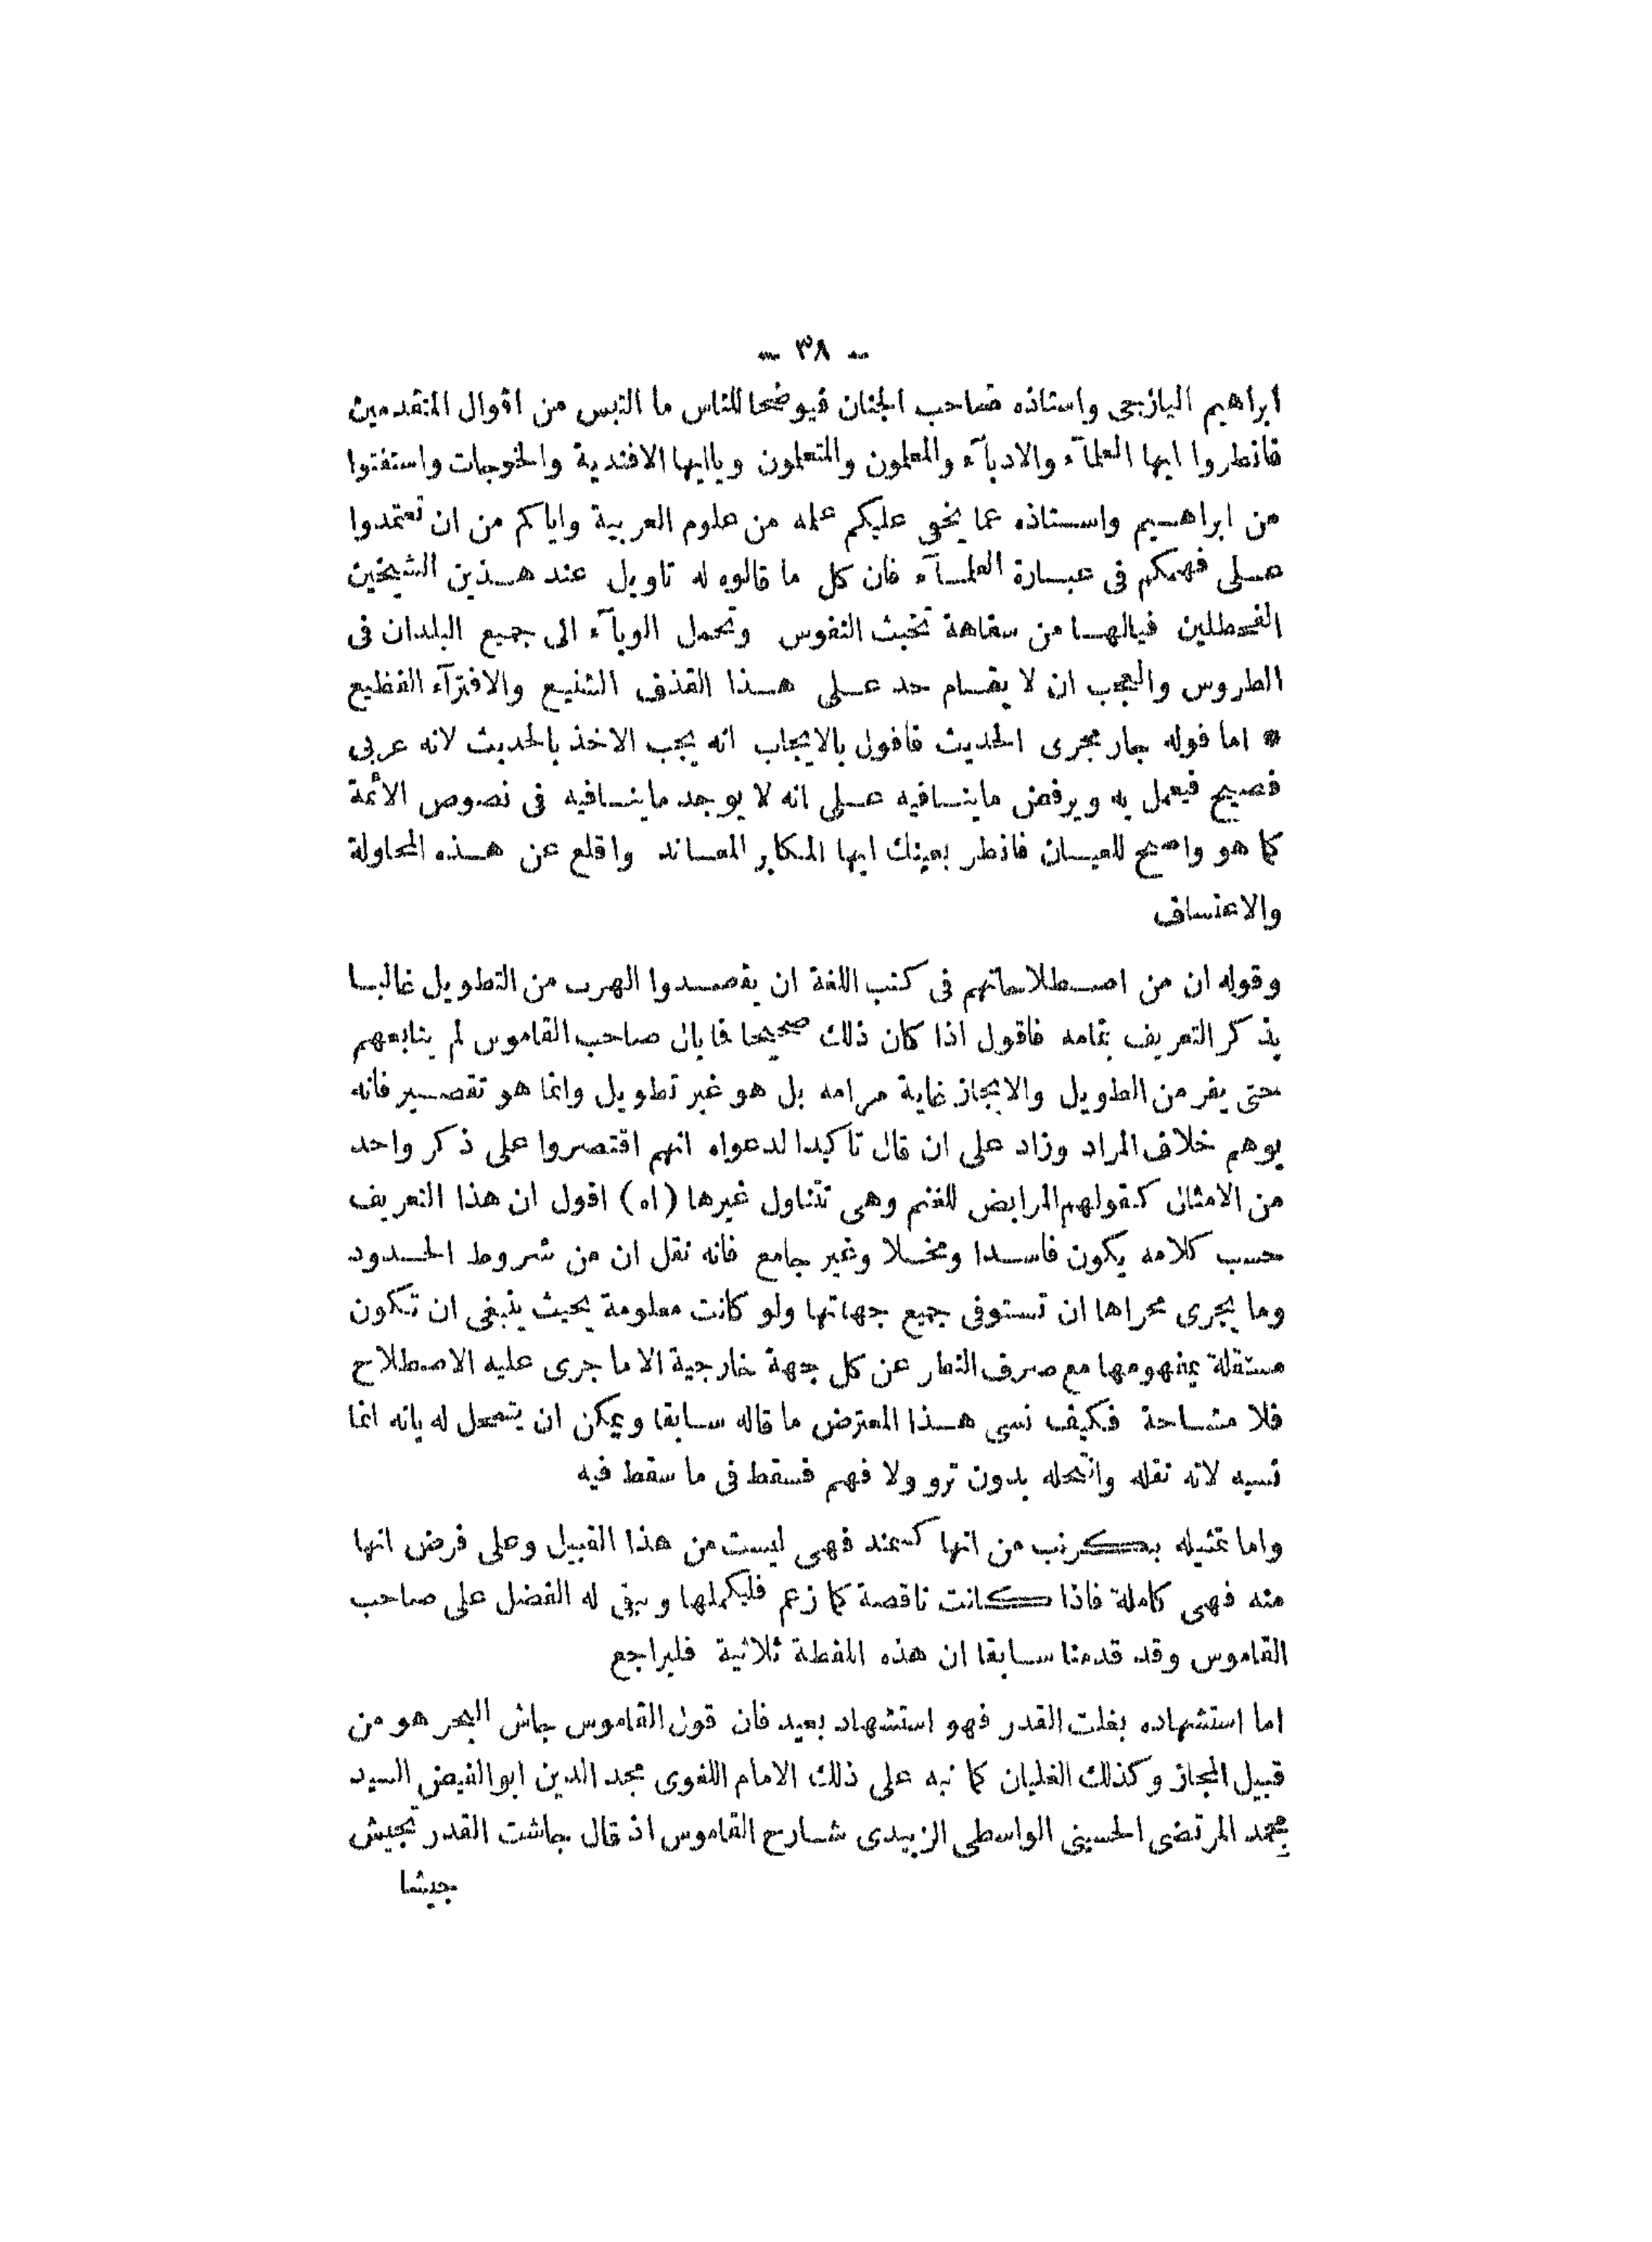 - ٣٨ -
ابراهيم اليازجى واستاذه صاحب الجنان فيوضحا للناس ما التبس من اقوال المتقدمين
فانظروا ايها العلمآء والادبآء والمعلمون والمتعلمون وياايها الافندية والخوجات واستفتوا
من ابراهيم واستاذه عما يخفى عليكم علمه من علوم العربية واياكم من ان تعتمدوا
على فهمكم فى عبارة العلمآء فان كل ما قالوه له تاويل عند هذين الشيخين
الفحطلين فيالها من سفاهة تخبث النفوس وتحمل الوبآء الى جميع البلدان فى
الطروس والعجب ان لا يقام حد على هذا القذف الشنيع والافترآء الفظيع
* اما قوله جار مجرى الحديث فاقول بالايجاب انه يجب الاخذ بالحديث لانه عربى
فصيح فيعمل به ويرفض ماينافيه على انه لا يوجد ماينافيه فى نصوص الأئمة
كما هو واضح للعيان فانظر بعينك ايها المكابر المعاند واقلع عن هذه المحاولة
والاعتساف
وقوله ان من اصطلاحاتهم فى كتب اللغة ان يقصدوا الهرب من التطويل غالبا
بذكر التعريف بتمامه فاقول اذا كان ذلك صحيحا فابال صاحب القاموس لم يتابعهم
حتى يفر من الطويل والايجاز غاية مرامه بل هو غير تطويل وانما هو تقصير فانه
يوهم خلاف المراد وزاد على ان قال تاكيدا لدعواه انهم اقتصروا على ذكر واحد
من الامثال كقولهم المرابض للغنم وهى تتناول غيرها (اه) اقول ان هذا التعريف
حسب كلامه يكون فاسدا ومخلا وغير جامع فانه نقل ان من شروط الحدود
وما يجرى مجراها ان تستوفى جميع جهاتها ولو كانت معلومة بحيث ينبغى ان تكون
مستقلة بمفهومها مع صرف النظر عن كل جهة خارجية الا ما جرى عليه الاصطلاح
فلا مشاحة فكيف نسى هذا المعترض ما قاله سابقا ويمكن ان يتمحل له بانه انما
نسيه لانه نقله وانتحله بدون ترو ولا فهم فسقط فى ما سقط فيه
واما تمثيله بكرنب من انها كسمند فهى ليست من هذا القبيل وعلى فرض انها
منه فهى كاملة فاذا كانت ناقصة كما زعم فليكملها ويبقى له الفضل على صاحب
القاموس وقد قدمنا سابقا ان هذه اللفظة ثلاثية فليراجع
اما استشهاده بغلت القدر فهو استشهاد بعيد فان قول القاموس جاش البحر هو من
قبيل المجاز وكذلك الغليان كما نبه على ذلك الامام اللغوى مجد الدين ابوالفيض السيد
محمد المرتضى الحسينى الواسطى الزبيدى شارح القاموس اذ قال جاشت القدر تجيش
جيشا